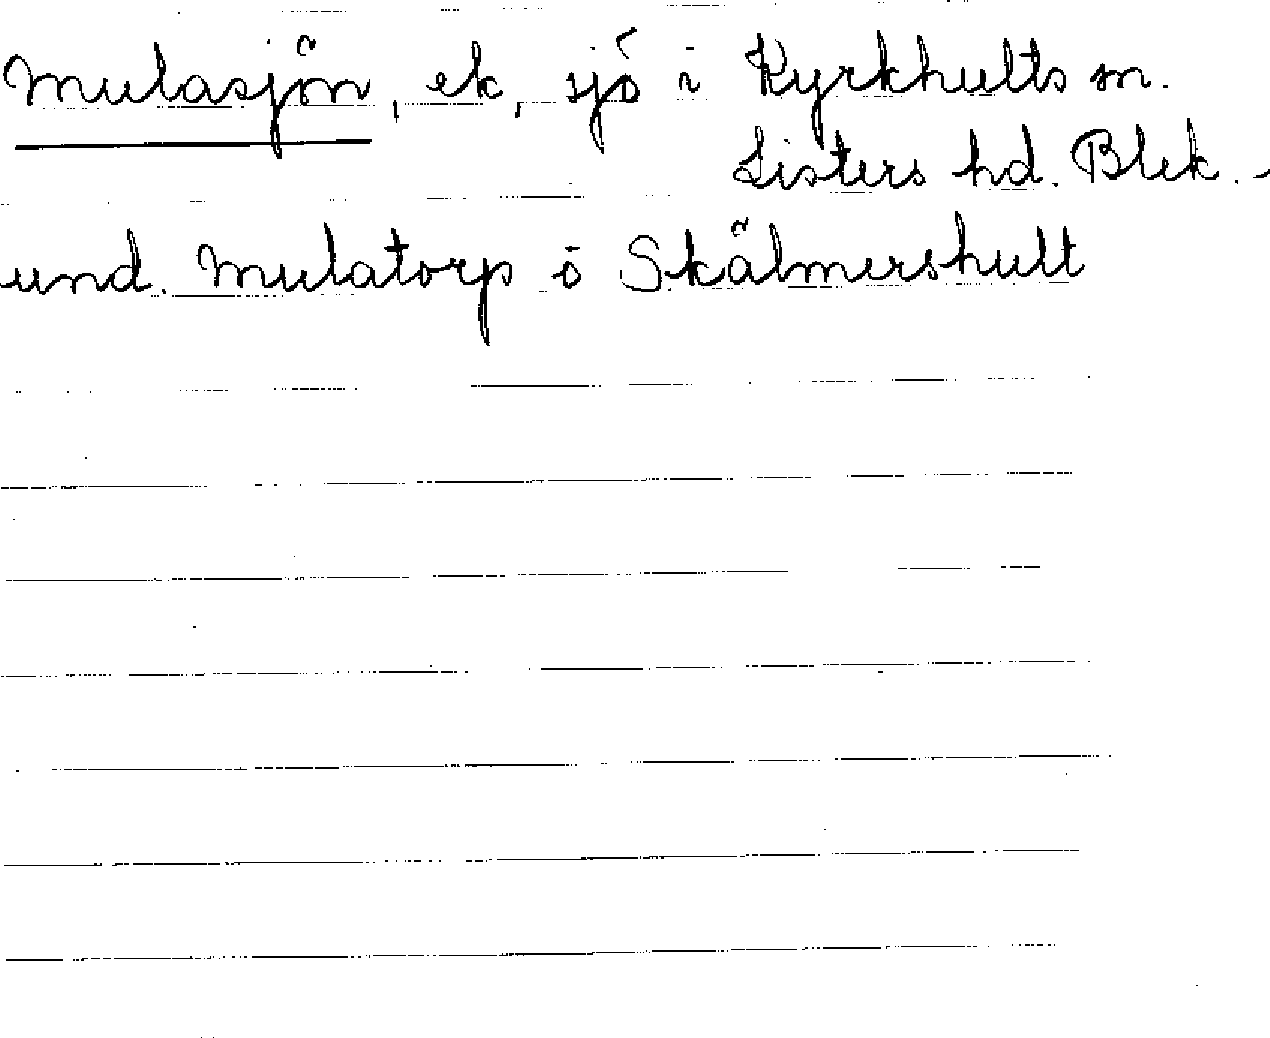 Mulasjön, ek, sjö i Kyrkhults sn.
Listers hd. Blek. -
und. Mulatorp o Skälmershult